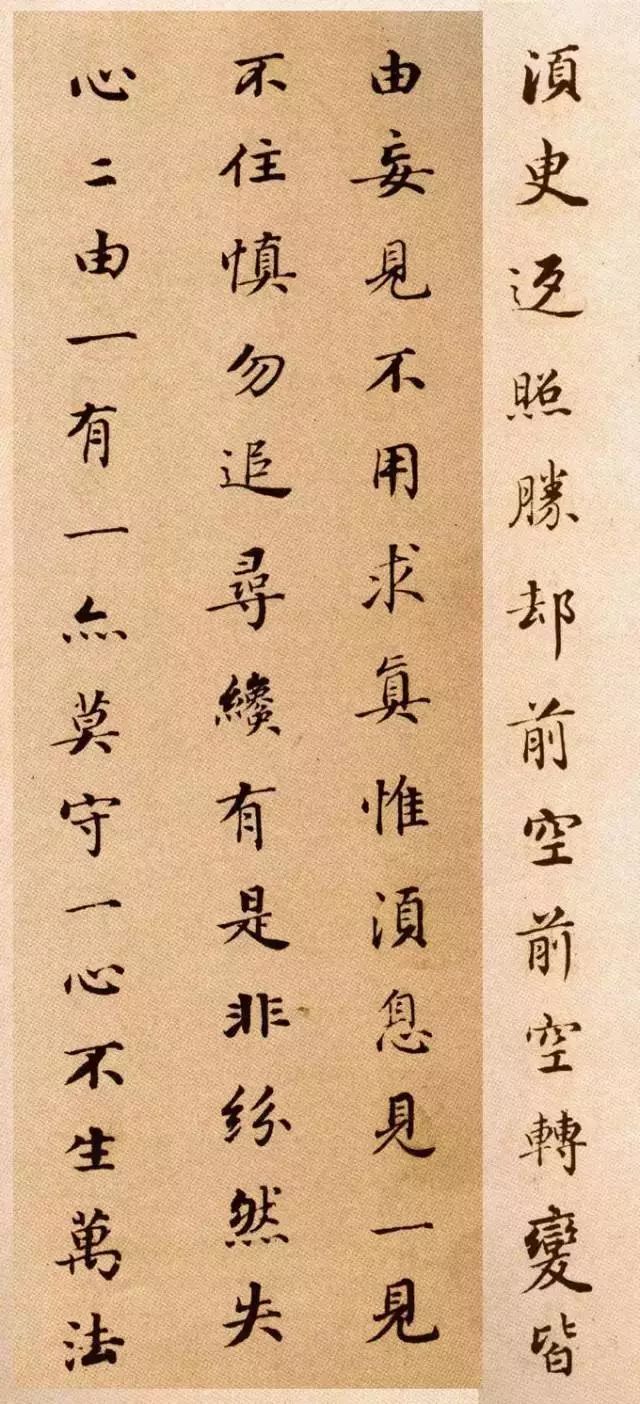 湏臾返照勝却前空前空轉變皆
由妄見不用求眞惟湏息見一見
不住慎勿追尋纔有是非紛然失
心二由一有一亦莫守一心不生萬法